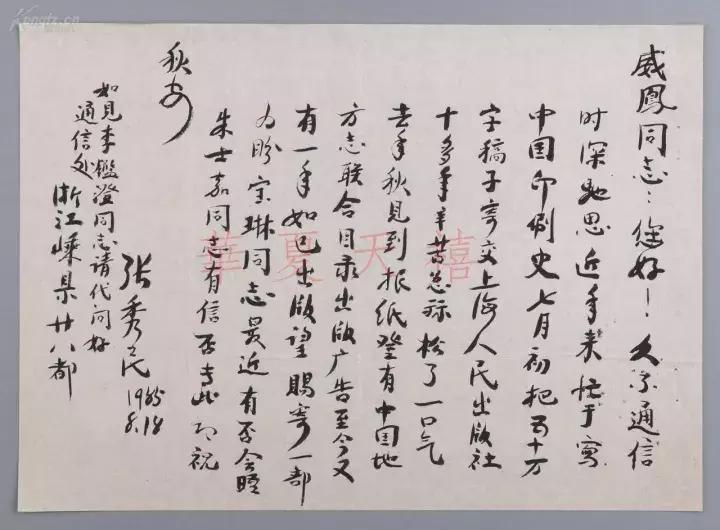 威鳳同志：您好！久未通信
时深馳思近年来忙于写
中国印刷史七月初把五十万
字稿子寄交上海人民出版社
十多年辛苦总算松了一口气
去年秋见到报纸登有中国地
方志联合目录出版广告至今又
有一年如已出版望賜寄一部
为盼宝琳同志最近有否会晤
朱士嘉同志有信否专此即祝
秋安
张秀民
1985
8.18
如见李檻澄同志请代问好
通信处
浙江嵊县廿八都
華夏天禧
Kongfz.cn